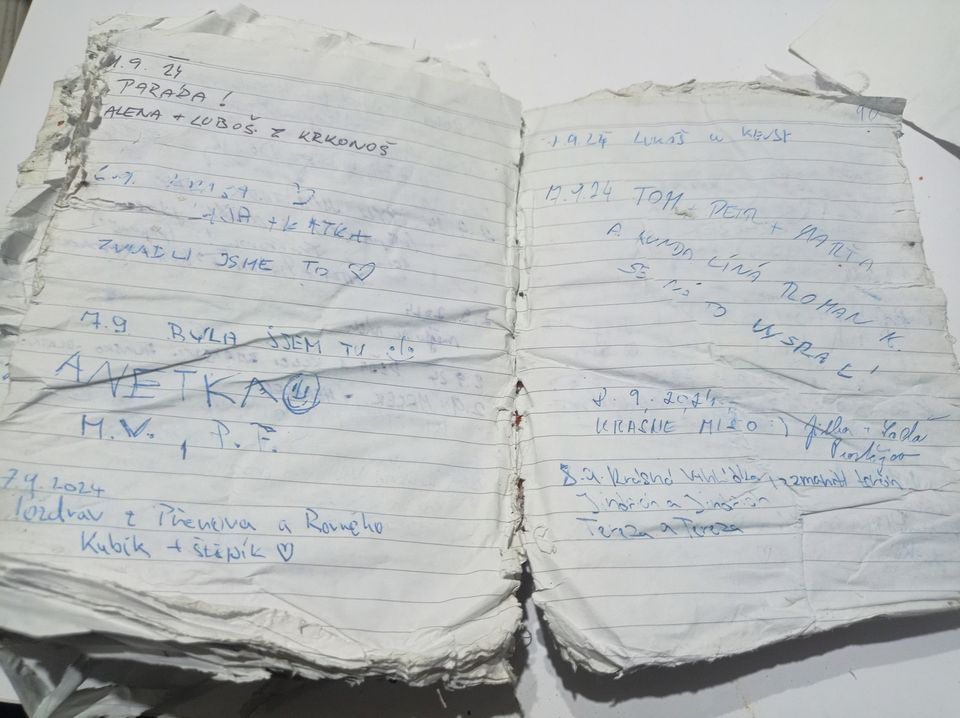 1.9.24
PARÁDA!
ALENA + LUBOŠ Z KRKONOŠ
6.9.
+ JA + KATKA
ZVLÁDLI JSME TO ♡
7.9 BYLA JSEM TU
ANETKA
M.V., P.F.
7.9.2024
Pozdrav z Přerova a Rovného
Kubík + štěpík ♡
90
1.9.24 LUKÁŠ
17.9.24 TOM + PETR + MARŤA
A KUNDA LÍNÁ ROMAN K.
SE NA TO VYSRAL!
8.9.2024
KRÁSNÉ MÍSTO :)
8.9. Krásná vyhlídka
Jindřich a Jindřich
Tereza a Tereza